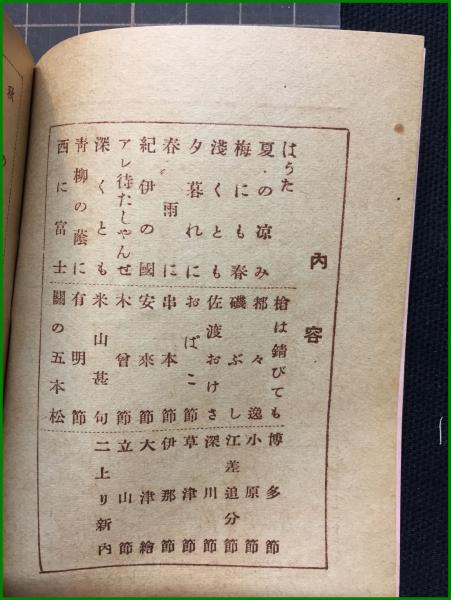 內容
はうた
夏の凉み
梅にも春
淺くとも
夕暮れに
春雨に
紀伊の國
アレ待たしゃんせ
深くとも
靑柳の蔭に
西に富士
槍は錆びても
都々逸
磯ぶし
佐渡おけさ
おばこ節
串本節
安來節
木曾節
米山甚句
有明節
關の五本松
博多節
小原節
江差追分
深川節
草津節
伊那節
大津繪
立山節
二上り新內